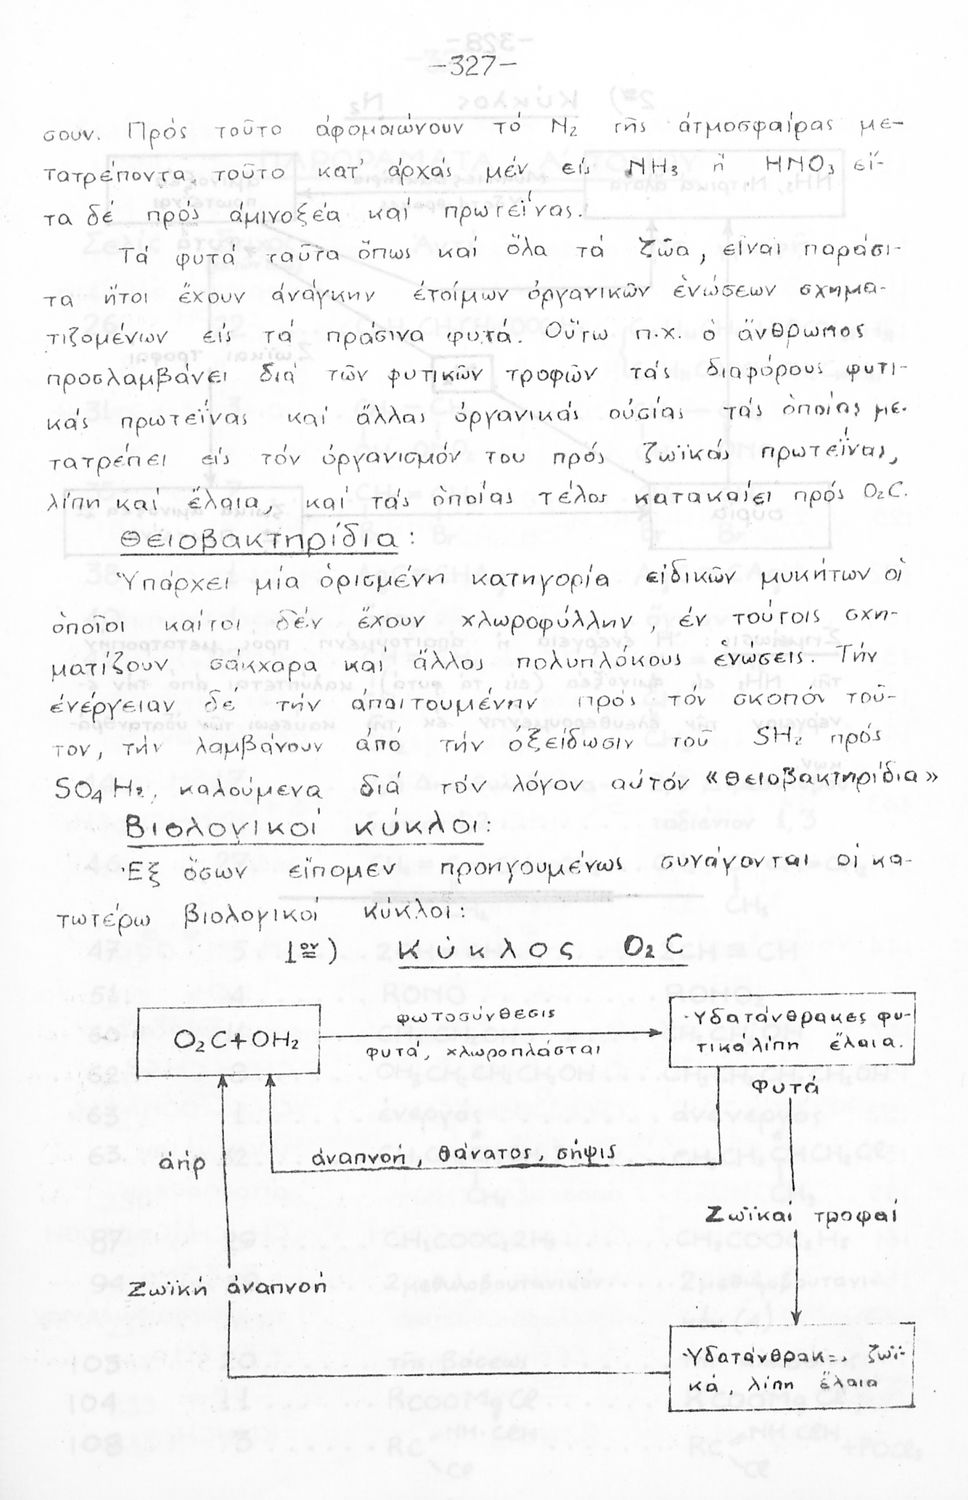 -327-
σουν. Πρός τοῦτο ἀφομοιώνουν τό N2 τῆς ἀτμοσφαίρας με-
τατρέποντα τοῦτο κατ' ἀρχάς μέν εἰς NH3 ἤ HNO3 εἴ-
τα δέ πρός ἀμινοξέα καί πρωτεΐνας.
Τά φυτά ταῦτα ὅπως καί ὅλα τά ζῶα, εἶναι παράσι-
τα ἤτοι ἔχουν ἀνάγκην ἑτοίμων ὀργανικῶν ἑνώσεων σχημα-
τιζομένων εἰς τά πράσινα φυτά. Οὕτω π.χ. ὁ ἄνθρωπος
προσλαμβάνει διά τῶν φυτικῶν τροφῶν τάς διαφόρους φυτι-
κάς πρωτεΐνας καί ἄλλας ὀργανικάς οὐσίας τάς ὁποίας με-
τατρέπει εἰς τόν ὀργανισμόν του πρός ζωϊκάς πρωτεΐνας,
λίπη καί ἔλαια, καί τάς ὁποίας τέλος κατακαίει πρός O2C.
Θειοβακτηρίδια:
Ὑπάρχει μία ὁρισμένη κατηγορία εἰδικῶν μυκήτων οἱ
ὁποῖοι καίτοι δέν ἔχουν χλωροφύλλην, ἐν τούτοις σχη-
ματίζουν σάκχαρα καί ἄλλος πολυπλόκους ἑνώσεις. Τήν
ἐνέργειαν δέ τήν ἀπαιτουμένην πρός τόν σκοπόν τοῦ-
τον, τήν λαμβάνουν ἀπό τήν ὀξείδωσιν τοῦ SH2 πρός
SO4H2, καλούμενα διά τόν λόγον αὐτόν «Θειοβακτηρίδια»
Βιολογικοί κύκλοι:
Ἐξ ὅσων εἴπομεν προηγουμένως συνάγονται οἱ κα-
τωτέρω βιολογικοί κύκλοι:
1ον) Κύκλος O2C
O2C+OH2
φωτοσύνθεσις
φυτά, χλωροπλάσται
Ὑδατάνθρακες φυ-
τικά λίπη ἔλαια.
Φυτά
ἀναπνοή, θάνατος, σῆψις
ἀήρ
Ζωϊκαί τροφαί
Ζωϊκή ἀναπνοή
Ὑδατάνθρακ=. ζωϊ-
κά, λίπη ἔλαια